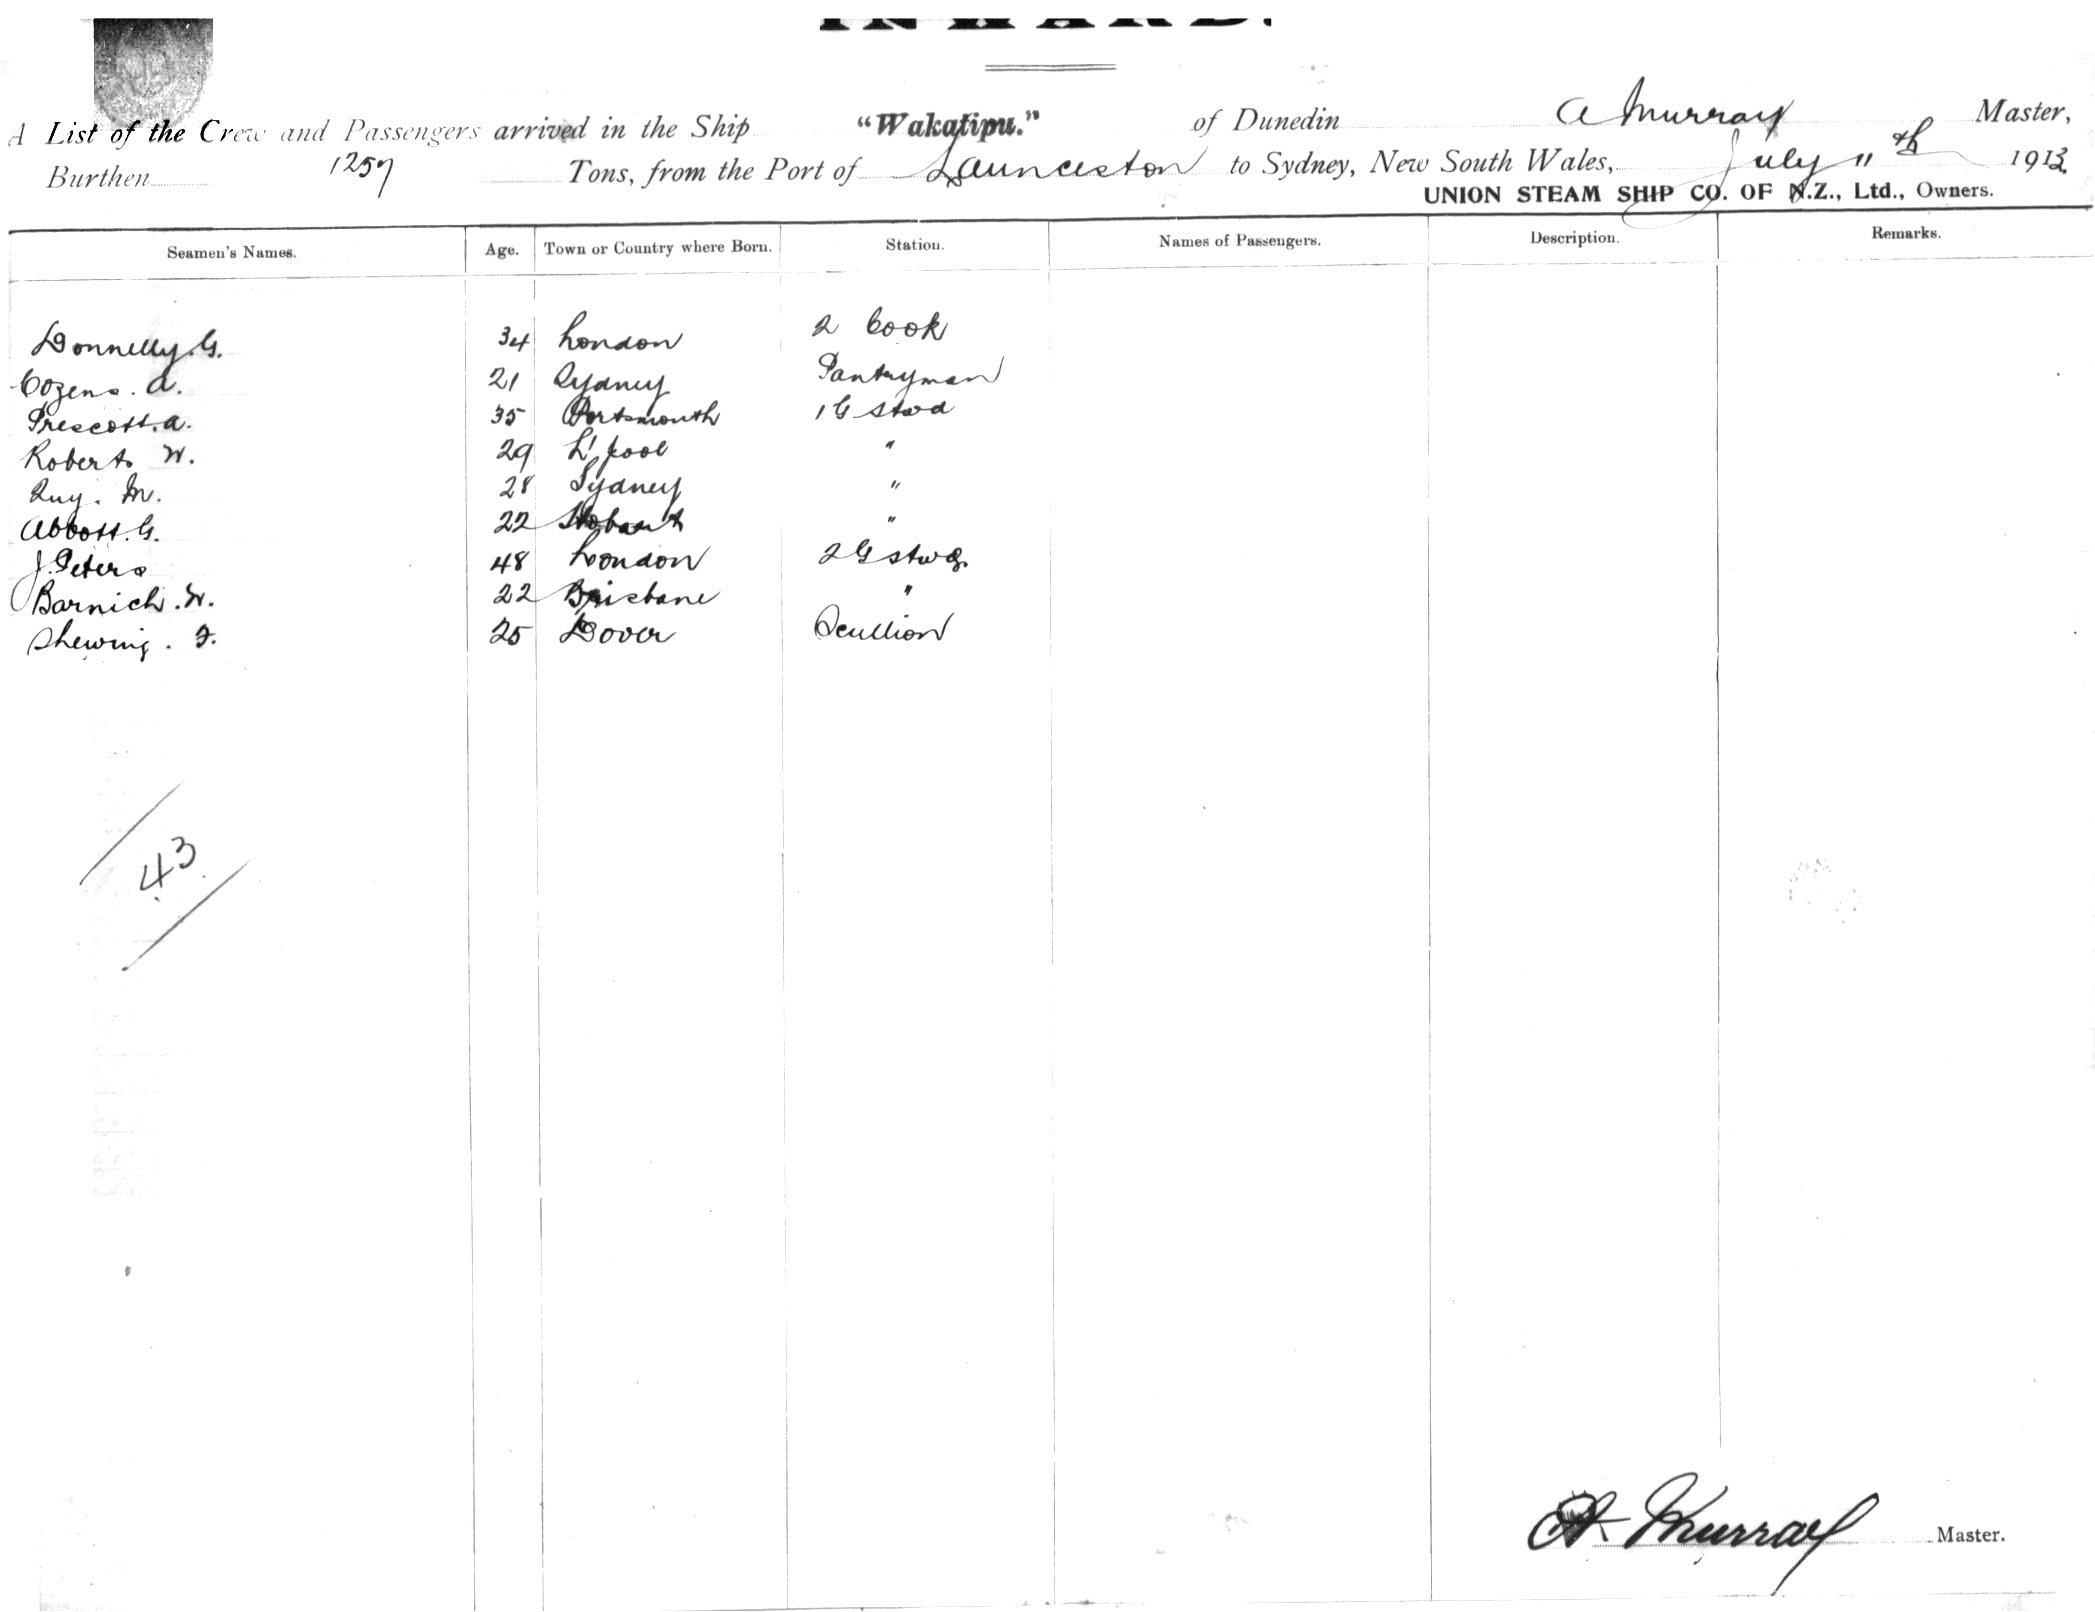 INWARD.
A List of the Crew and Passengers arrived in the Ship "Wakatipu." of Dunedin A Murray Master,
Burthen 1257 Tons, from the Port of Launceston to Sydney, New South Wales, July 11th 1913
UNION STEAM SHIP CO. OF N.Z., Ltd., Owners.
Seamen's Names. Age. Town or Country where Born. Station. Names of Passengers. Description. Remarks.
Donnelly. G. 34 London 2 Cook
Cozens. A. 21 Sydney Pantryman
Prescott. A. 35 Portsmouth 1 G Stwd
Roberts W. 29 L'pool "
Quy. M. 28 Sydney "
Abbott. G. 22 Hobart "
J. Peters 48 London 2 G Stwd.
Barnich. W. 22 Brisbane "
Shewing. F. 25 Dover Scullion
43
A Murray Master.